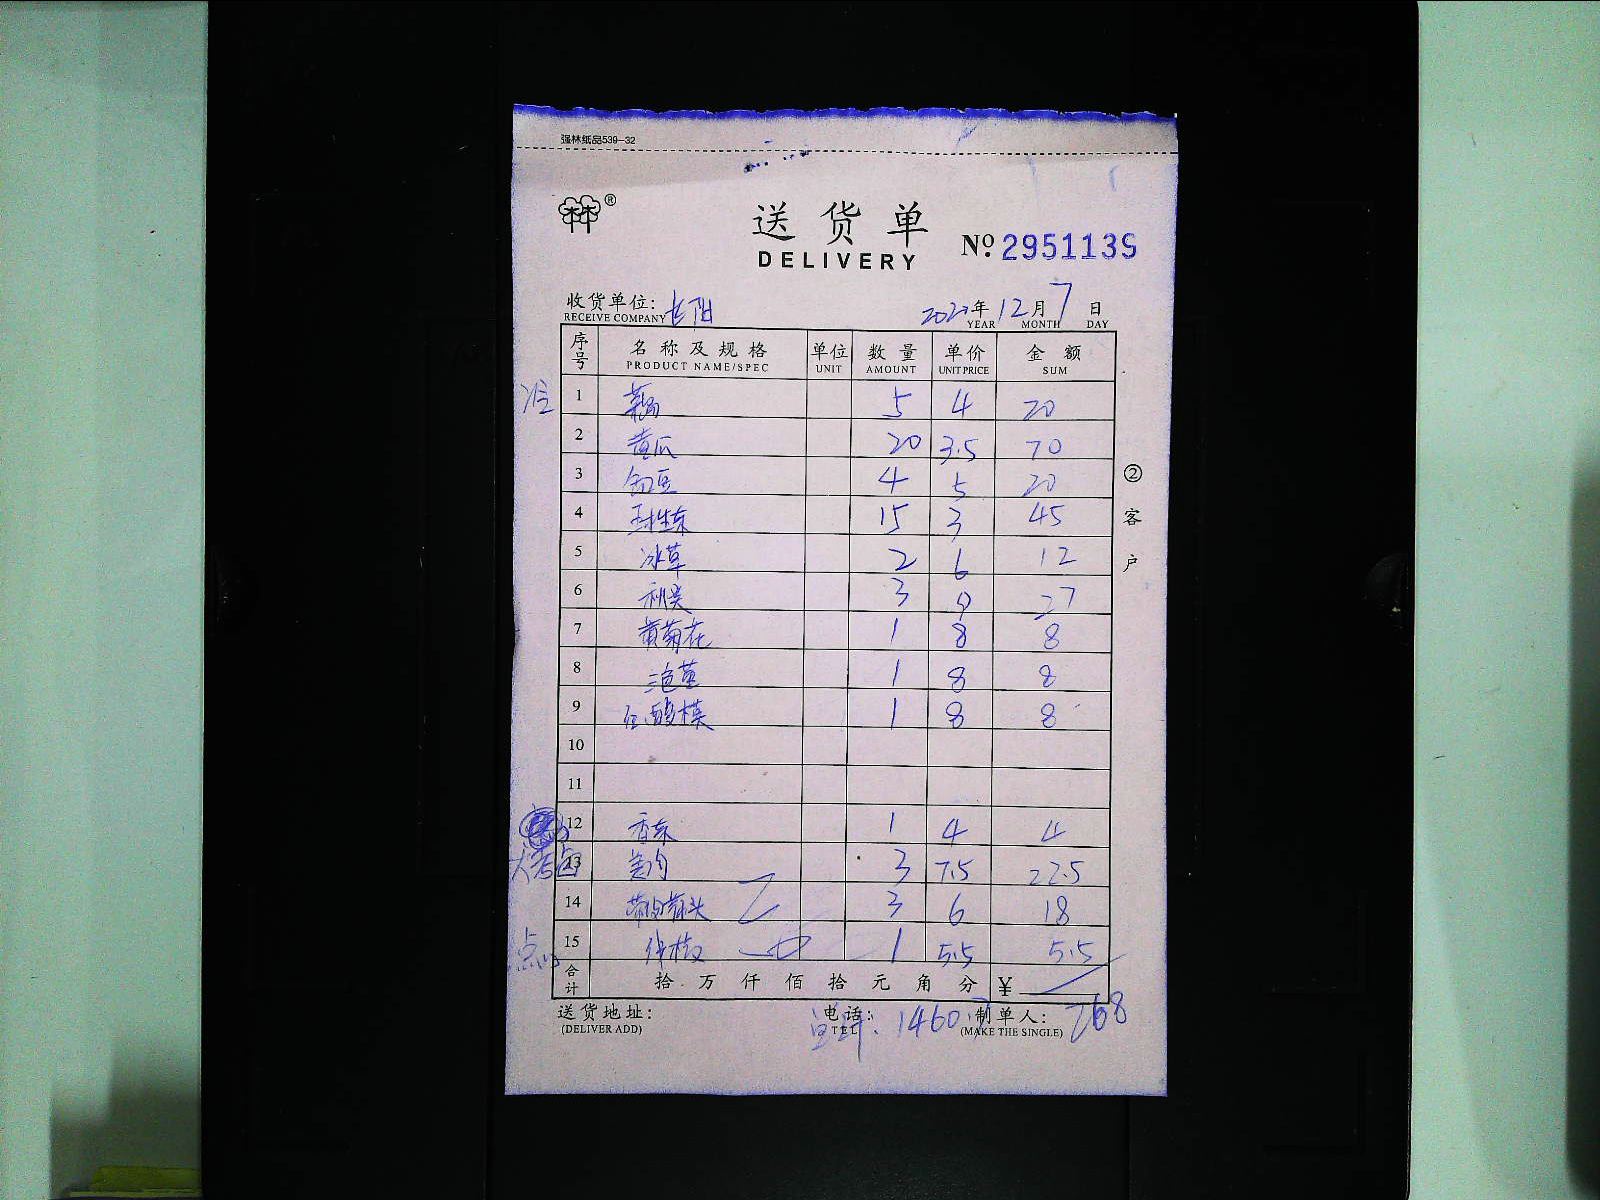 强林纸品539-32
送货单
DELIVERY
№ 2951139
收货单位: 长阳 2022年12月7日
RECEIVE COMPANY YEAR MONTH DAY
序号 名称及规格 单位 数量 单价 金额
PRODUCT NAME/SPEC UNIT AMOUNT UNIT PRICE SUM
1 5 4 20
2 黄瓜 20 3.5 70
3 4 5 20
4 15 3 45
5 冰草 2 6 12
6 秋葵 3 9 27
7 黄菊花 1 8 8
8 1 8 8
9 1 8 8
10
11
12 香 1 4 4
13 3 7.5 22.5
14 头 3 6 18
15 线椒 1 5.5 5.5
合计 拾 万 仟 佰 拾 元 角 分 ¥
送货地址: 电话: 1460 制单人: 268
(DELIVER ADD) TEL (MAKE THE SINGLE)
②客户